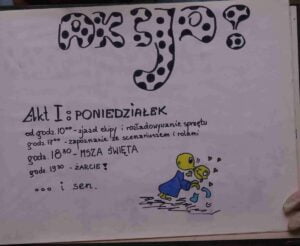 AKCJA!
Akt I: PONIEDZIAŁEK
od godz. 10⁰⁰ - zjazd ekipy i rozładowywanie sprzętu
godz. 17⁰⁰ - zapoznanie ze scenariuszem i rolami
godz. 18³⁰ - MSZA ŚWIĘTA
godz. 19³⁰ - ŻARCIE!
... i sen.